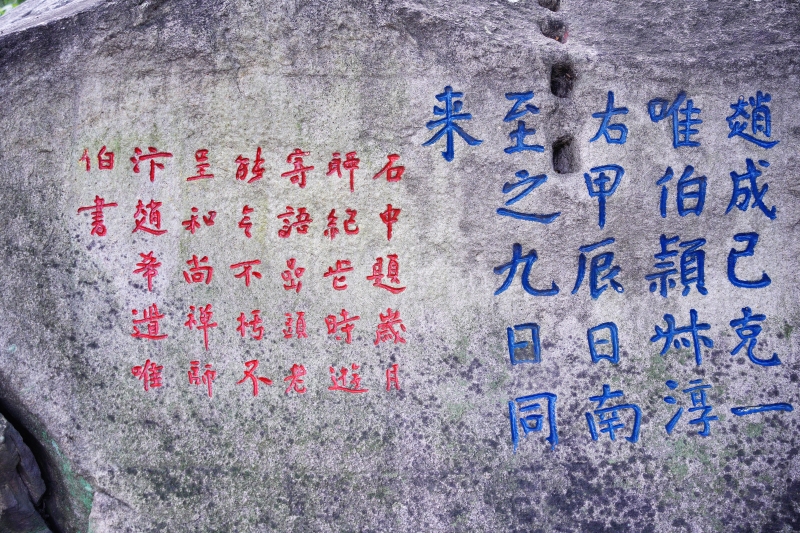 趙成己克一
唯伯頴叔淳
右甲辰日南
至之九日同
来
石中題歲月
聊紀此時遊
寄語出頭老
能令不朽不
呈和尚禅師
汴趙希道唯
伯書